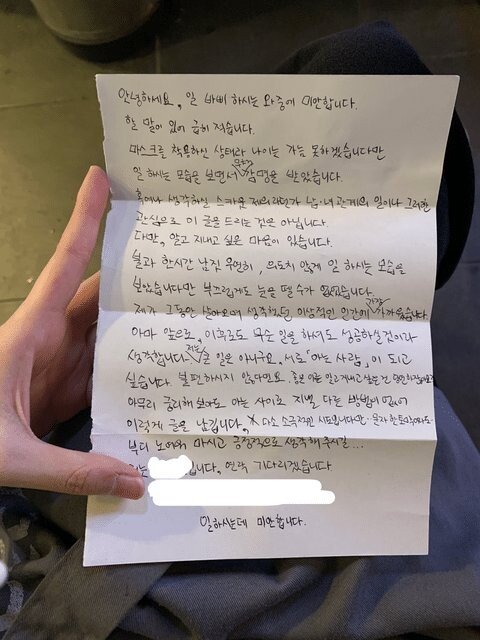 안녕하세요, 일 바삐 하시는 와중에 미안합니다.
할 말이 있어 급히 적습니다.
마스크를 착용하신 상태라 나이는 가늠 못하겠습니다만
일 하시는 모습을 보면서 감명을 받았습니다.
혹여나 생각하실 스카웃 제의라던가 남·녀 관계의 일이나 그러한
관심으로 이 글을 드리는 것은 아닙니다.
다만, 알고 지내고 싶은 마음이 있습니다.
불과 한시간 남짓 우연히, 의도치 않게 일 하시는 모습을
보았습니다만 부끄럽게도 눈을 뗄 수가 없었습니다.
제가 그동안 살아오며 생각했던 이상적인 인간에 가장 가까웠습니다
아마 앞으로, 이후로도 무슨 일을 하셔도 성공하실 것이라
생각합니다. 저는 큰 일은 아니구요, 서로 '아는 사람'이 되고
싶습니다. 불편하시지 않다면요. 좋은 이는 알고 지내고 싶은 건 당연하잖아요
아무리 궁리해 보아도 아는 사이로 지낼 다른 방법이 없어
이렇게 글을 남깁니다. * 다소 소극적인 시도입니다만. 문자 한 통이라도
부디 노여워 마시고 긍정적으로 생각해 주시길...
입니다, 연락 기다리겠습니다.
일하시는데 미안합니다.